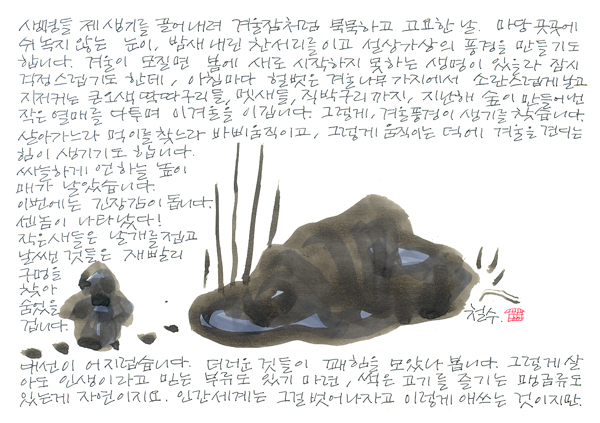 생명들 제 생기를 끌어내려 겨울잠처럼 묵묵하고 고요한 날. 마당 곳곳에
쉬 녹지 않는 눈이, 밤새 내린 찬서리를 이고 설상가상의 풍경을 만들기도
합니다. 겨울이 모질면 봄에 새로 시작하지 못하는 생명이 있을라 잠시
걱정스럽기도 한데, 아침마다 헐벗은 겨울나무 가지에서 소란스럽게 날고
지저귀는 큰오색딱따구리들, 멧새들, 직박구리까지, 지난해 숲이 만들어낸
작은 열매를 다투며 이 겨울을 이깁니다. 그렇게, 겨울풍경이 생기를 찾습니다.
살아가느라 먹이를 찾느라 바삐 움직이고, 그렇게 움직이는 덕에 겨울을 견디는
힘이 생기기도 합니다.
싸늘하게 언 하늘 높이
매가 날았습니다.
이번에는 긴장감이 돕니다.
센놈이 나타났다!
작은새들은 날개를 접고
날쌘 것들은 재빨리
구멍을
찾아
숨었을
겁니다.
철수.
대선이 어지럽습니다. 더러운 것들이 패함을 모았나 봅니다. 그렇게 살
아도 인생이라고 믿는 부류도 있기 마련, 썩은 고기를 즐기는 맹금류도
있는게 자연이지요. 인간세계는 그걸 벗어나자고 이렇게 애쓰는 것이지만.